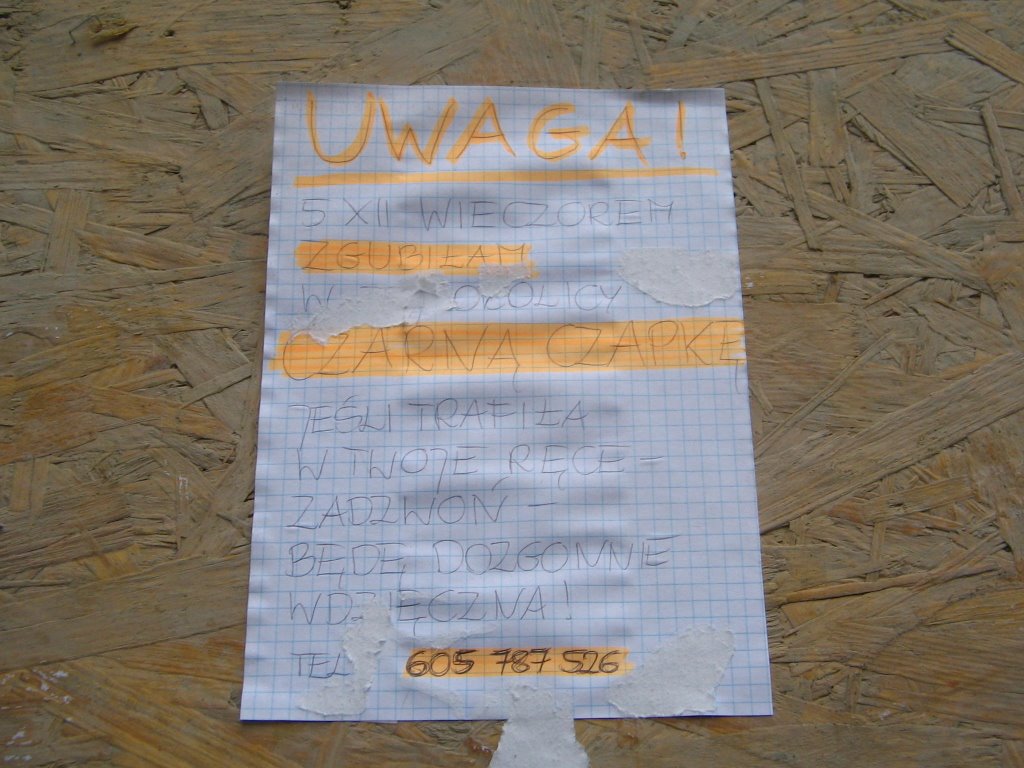 UWAGA!
5 XII WIECZOREM
ZGUBIŁAM
W OKOLICY
CZARNĄ CZAPKĘ
JEŚLI TRAFIŁA
W TWOJE RĘCE –
ZADZWOŃ –
BĘDĘ DOZGONNIE
WDZIĘCZNA!
TEL 605 787 526